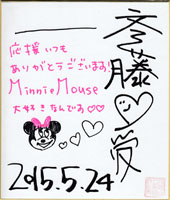 応援いつも
ありがとうございます!
Minnie Mouse
大好きなんです♡♡
斉藤♡愛
2015.5.24